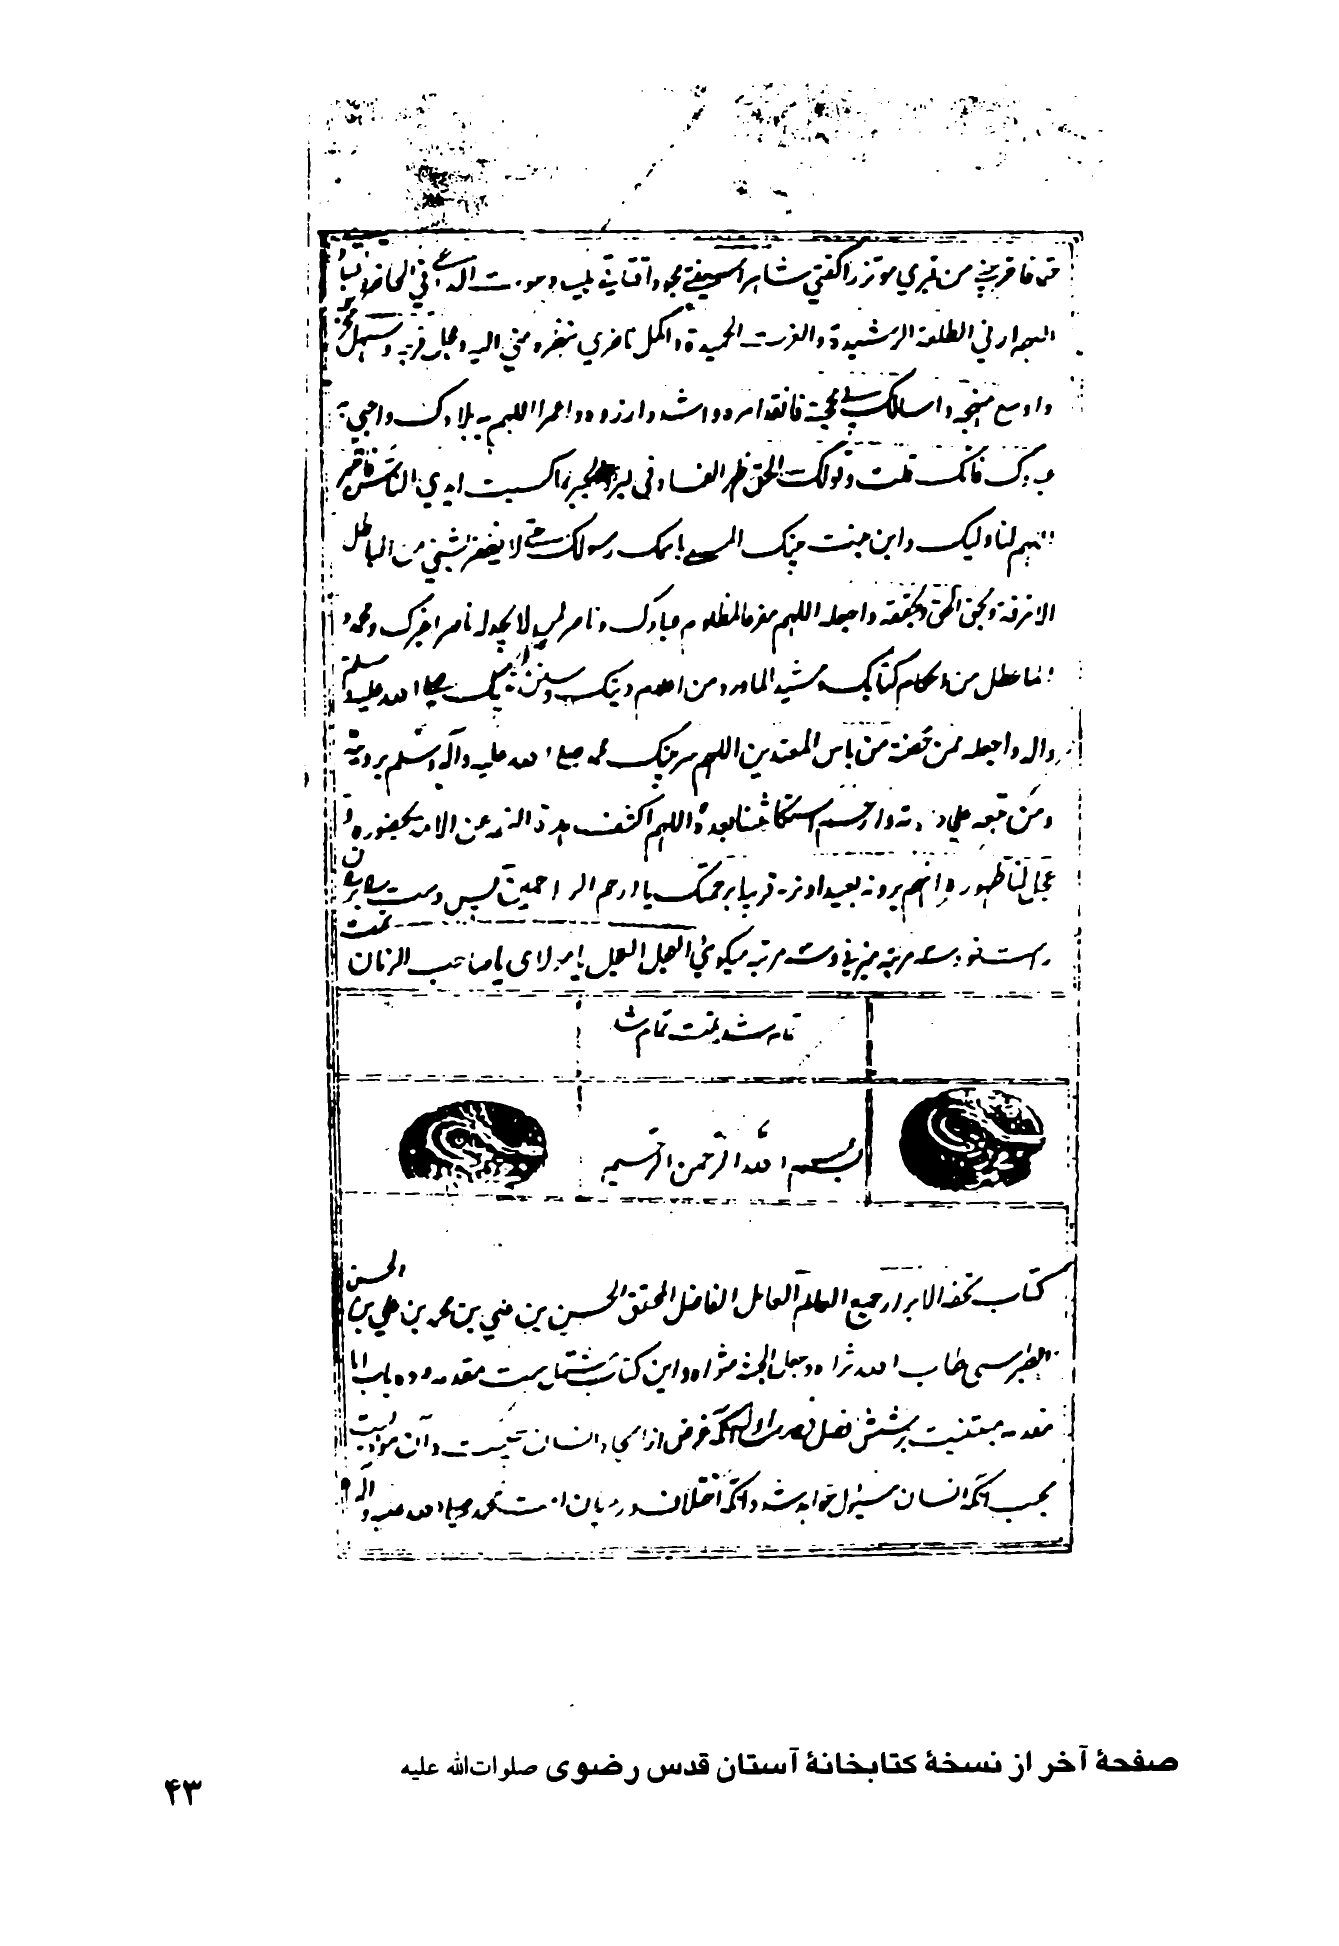 قبري موتزرا كفني شاهرا سيفي مجردا قناتي ملبيا دعوة الداعي في الحاضر و البادي
اللهم ارني الطلعة الرشيدة و الغرة الحميدة و اكحل ناظري بنظرة مني اليه و عجل فرجه و سهل مخرجه
و اوسع منهجه و اسلك بي محجته فانفذ امره و اشدد ازره و اعمر اللهم به بلادك و احيي به
عبادك فانك قلت و قولك الحق ظهر الفساد في البر و البحر بما كسبت ايدي الناس فاظهر
اللهم لنا وليك و ابن بنت نبيك المسمى باسم رسولك حتى لا يظفر بشيء من الباطل
الا مزقه و يحق الحق و يحققه و اجعله اللهم مفزعا لمظلوم عبادك و ناصرا لمن لا يجد له ناصرا غيرك و مجددا
لما عطل من احكام كتابك و مشيدا لما ورد من اعلام دينك و سنن نبيك صلى الله عليه
و آله و سلم و اجعله ممن حصنته من باس المعتدين اللهم سر نبيك محمد صلى الله عليه و آله و سلم برويته
و من تبعه على دعوته و ارحم استكانتنا بعده اللهم اكشف هذه الغمة عن الامة بحضوره و
عجل لنا ظهوره انهم يرونه بعيدا و نراه قريبا برحمتك يا ارحم الراحمين پس دست بر ران
راست خود سه مرتبه ميزني و سه مرتبه ميگوئي العجل العجل يا مولاي يا صاحب الزمان
تمت
تمام شد تمت تمام شد
بسم الله الرحمن الرحيم
كتاب تحفه الابرار جميع العالم العامل الفاضل المحقق الحسين بن علي بن محمد بن علي بن الحسن
الطبرسي طاب الله ثراه و جعل الجنة مثواه و اين كتاب مشتمل است مقدمه و ده باب اما
مقدمه مبتنيست بر شش فصل فصل اول آنكه غرض از ايجاد انسان چيست و آن
بحسب آنكه انسان مسئول خواهد شد و آنكه اختلاف در ميان امت محمد صلى الله عليه و آله
صفحهٔ آخر از نسخهٔ کتابخانهٔ آستان قدس رضوی صلوات‌الله علیه
۴۳